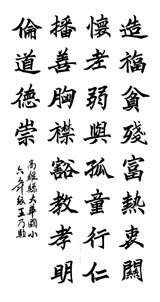 造福貧殘富熱衷關
懷老弱與孤童行仁
播善胸襟豁教孝明
倫道德崇
高雄縣大華國小
六年級王乃